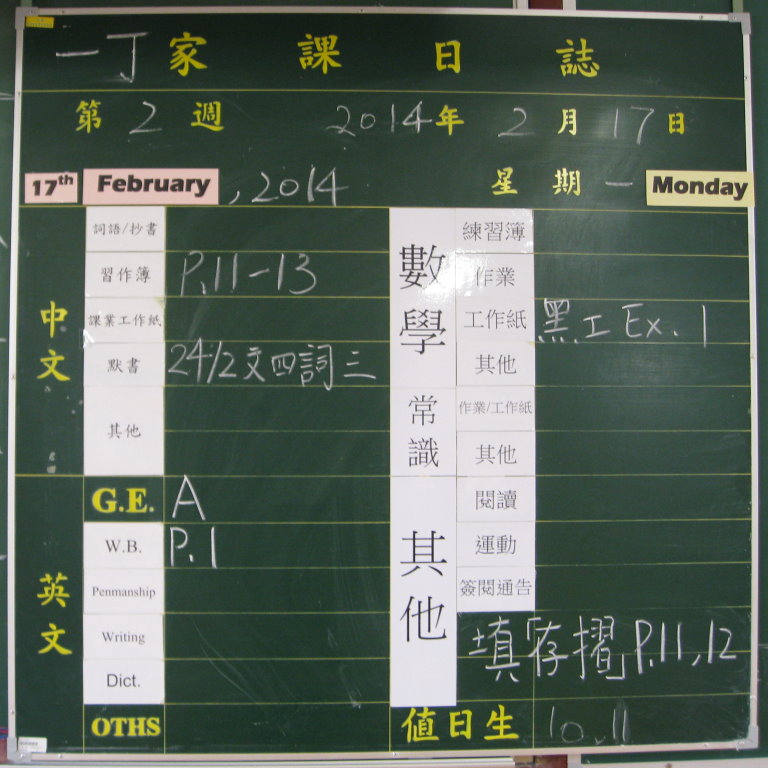 一丁家課日誌
第2週 2014年2月17日
17th February, 2014 星期一 Monday
中文
詞語/抄書
習作簿 P.11-13
課業工作紙
默書 24/2文四詞三
其他
英文
G.E. A
W.B. P.1
Penmanship
Writing
Dict.
OTHS
數學
練習簿
作業
工作紙 黑工 Ex.1
其他
常識
作業/工作紙
其他
其他
閱讀
運動
簽閱通告
填「存摺」P.11,12
值日生 10,11